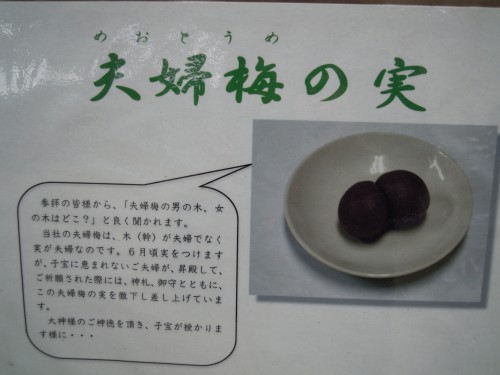 めおとうめ
夫婦梅の実
参拝の皆様から、「夫婦梅の男の木、女
の木はどこ?」と良く聞かれます。
当社の夫婦梅は、木（幹）が夫婦でなく
実が夫婦なのです。６月頃実をつけます
が、子宝に恵まれないご夫婦が、昇殿して、
ご祈願された際には、神札、御守とともに、
この夫婦梅の実を徹下し差し上げていま
す。
大神様のご神徳を頂き、子宝が授かりま
す様に・・・